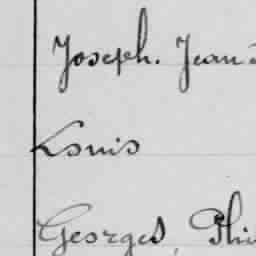 Joseph. Jean
Louis
Georges, Phi